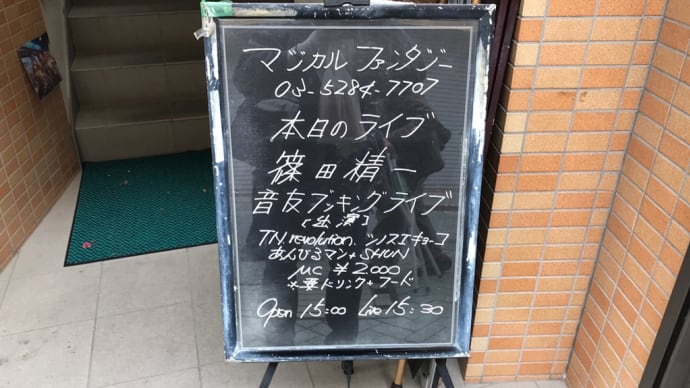 マジカル ファンタジー
03-5284-7707
本日のライブ
篠田精一
音友ブッキングライブ
[出演]
TN.revolution. シノスエキョーコ
あんびるマン+SHUN
MC ¥2.000
※要ドリンク+フード
Open 15:00 Live 15:30